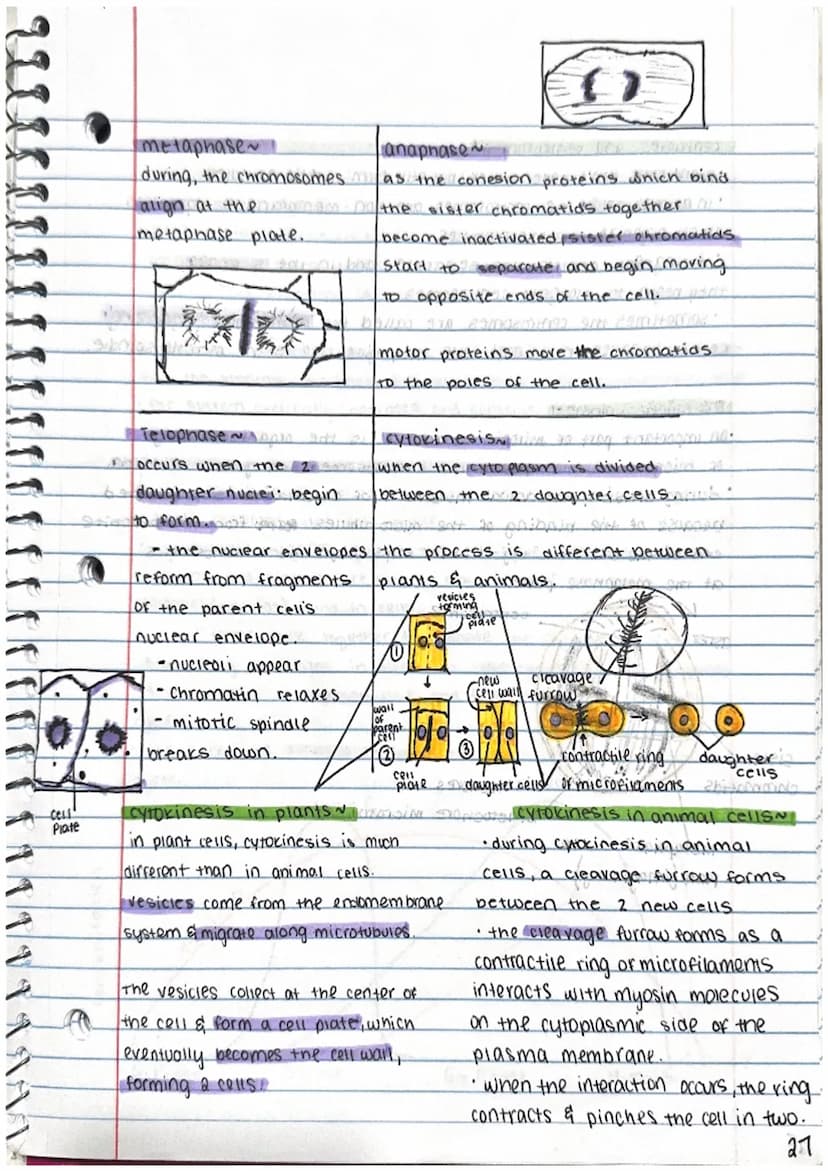 metaphase~
during, the chromosomes
align at the
metaphase plate.
anaphase~
as the cohesion proteins which bind
the sister chromatids together
become inactivated, sister chromatids
start to separate and begin moving
to opposite ends of the cell.
motor proteins move the chromatids
to the poles of the cell.
Telophase~
occurs when the 2
daughter nuclei begin
to form.
- the nuclear envelopes
reform from fragments
of the parent cell's
nuclear envelope.
- nucleoli appear
- chromatin relaxes
- mitotic spindle
breaks down.
cell
plate
cytokinesis~
when the cytoplasm is divided
between the 2 daughter cells.
the process is different between
plants & animals.
vesicles
forming
cell
plate
①
wall
of
parent
cell
②
cell
plate
new
cell wall
③
daughter cells
cleavage
furrow
contractile ring
of microfilaments
daughter
cells
cytokinesis in plants~
in plant cells, cytokinesis is much
different than in animal cells.
vesicles come from the endomembrane
system & migrate along microtubules.
The vesicles collect at the center of
the cell & form a cell plate, which
eventually becomes the cell wall,
forming 2 cells!
cytokinesis in animal cells~
· during cytokinesis in animal
cells, a cleavage furrow forms
between the 2 new cells
· the cleavage furrow forms as a
contractile ring of microfilaments
interacts with myosin molecules
on the cytoplasmic side of the
plasma membrane.
· when the interaction occurs, the ring
contracts & pinches the cell in two.
27